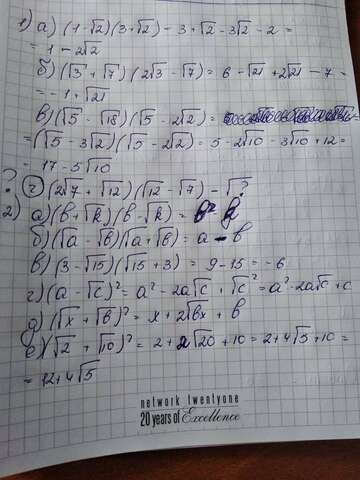 1) а) (1-√2)(3+√2) = 3+√2-3√2-2=
= 1-2√2
б) (√3+√7)(2√3-√7) = 6-√21+2√21-7=
= -1+√21
в) (√5-√18)(√5-2√2) =
=(√5-3√2)(√5-2√2) = 5-2√10-3√10+12=
17-5√10
? г) (2√7+√12)(√12-√7) - √?
2) а) (b+√k)(b-√k) =
б) (√a-√b)(√a+√b) = a-b
в) (3-√15)(√15+3) = 9-15=-6
г) (a-√c)² = a²-2a√c+√c² = a²-2a√c+c
д) (√x+√b)² = x+2√bx+b
е) (√2+√10)² = 2+2√20+10=2+4√5+10=
= 12+4√5
network twentyone
20 years of Excellence